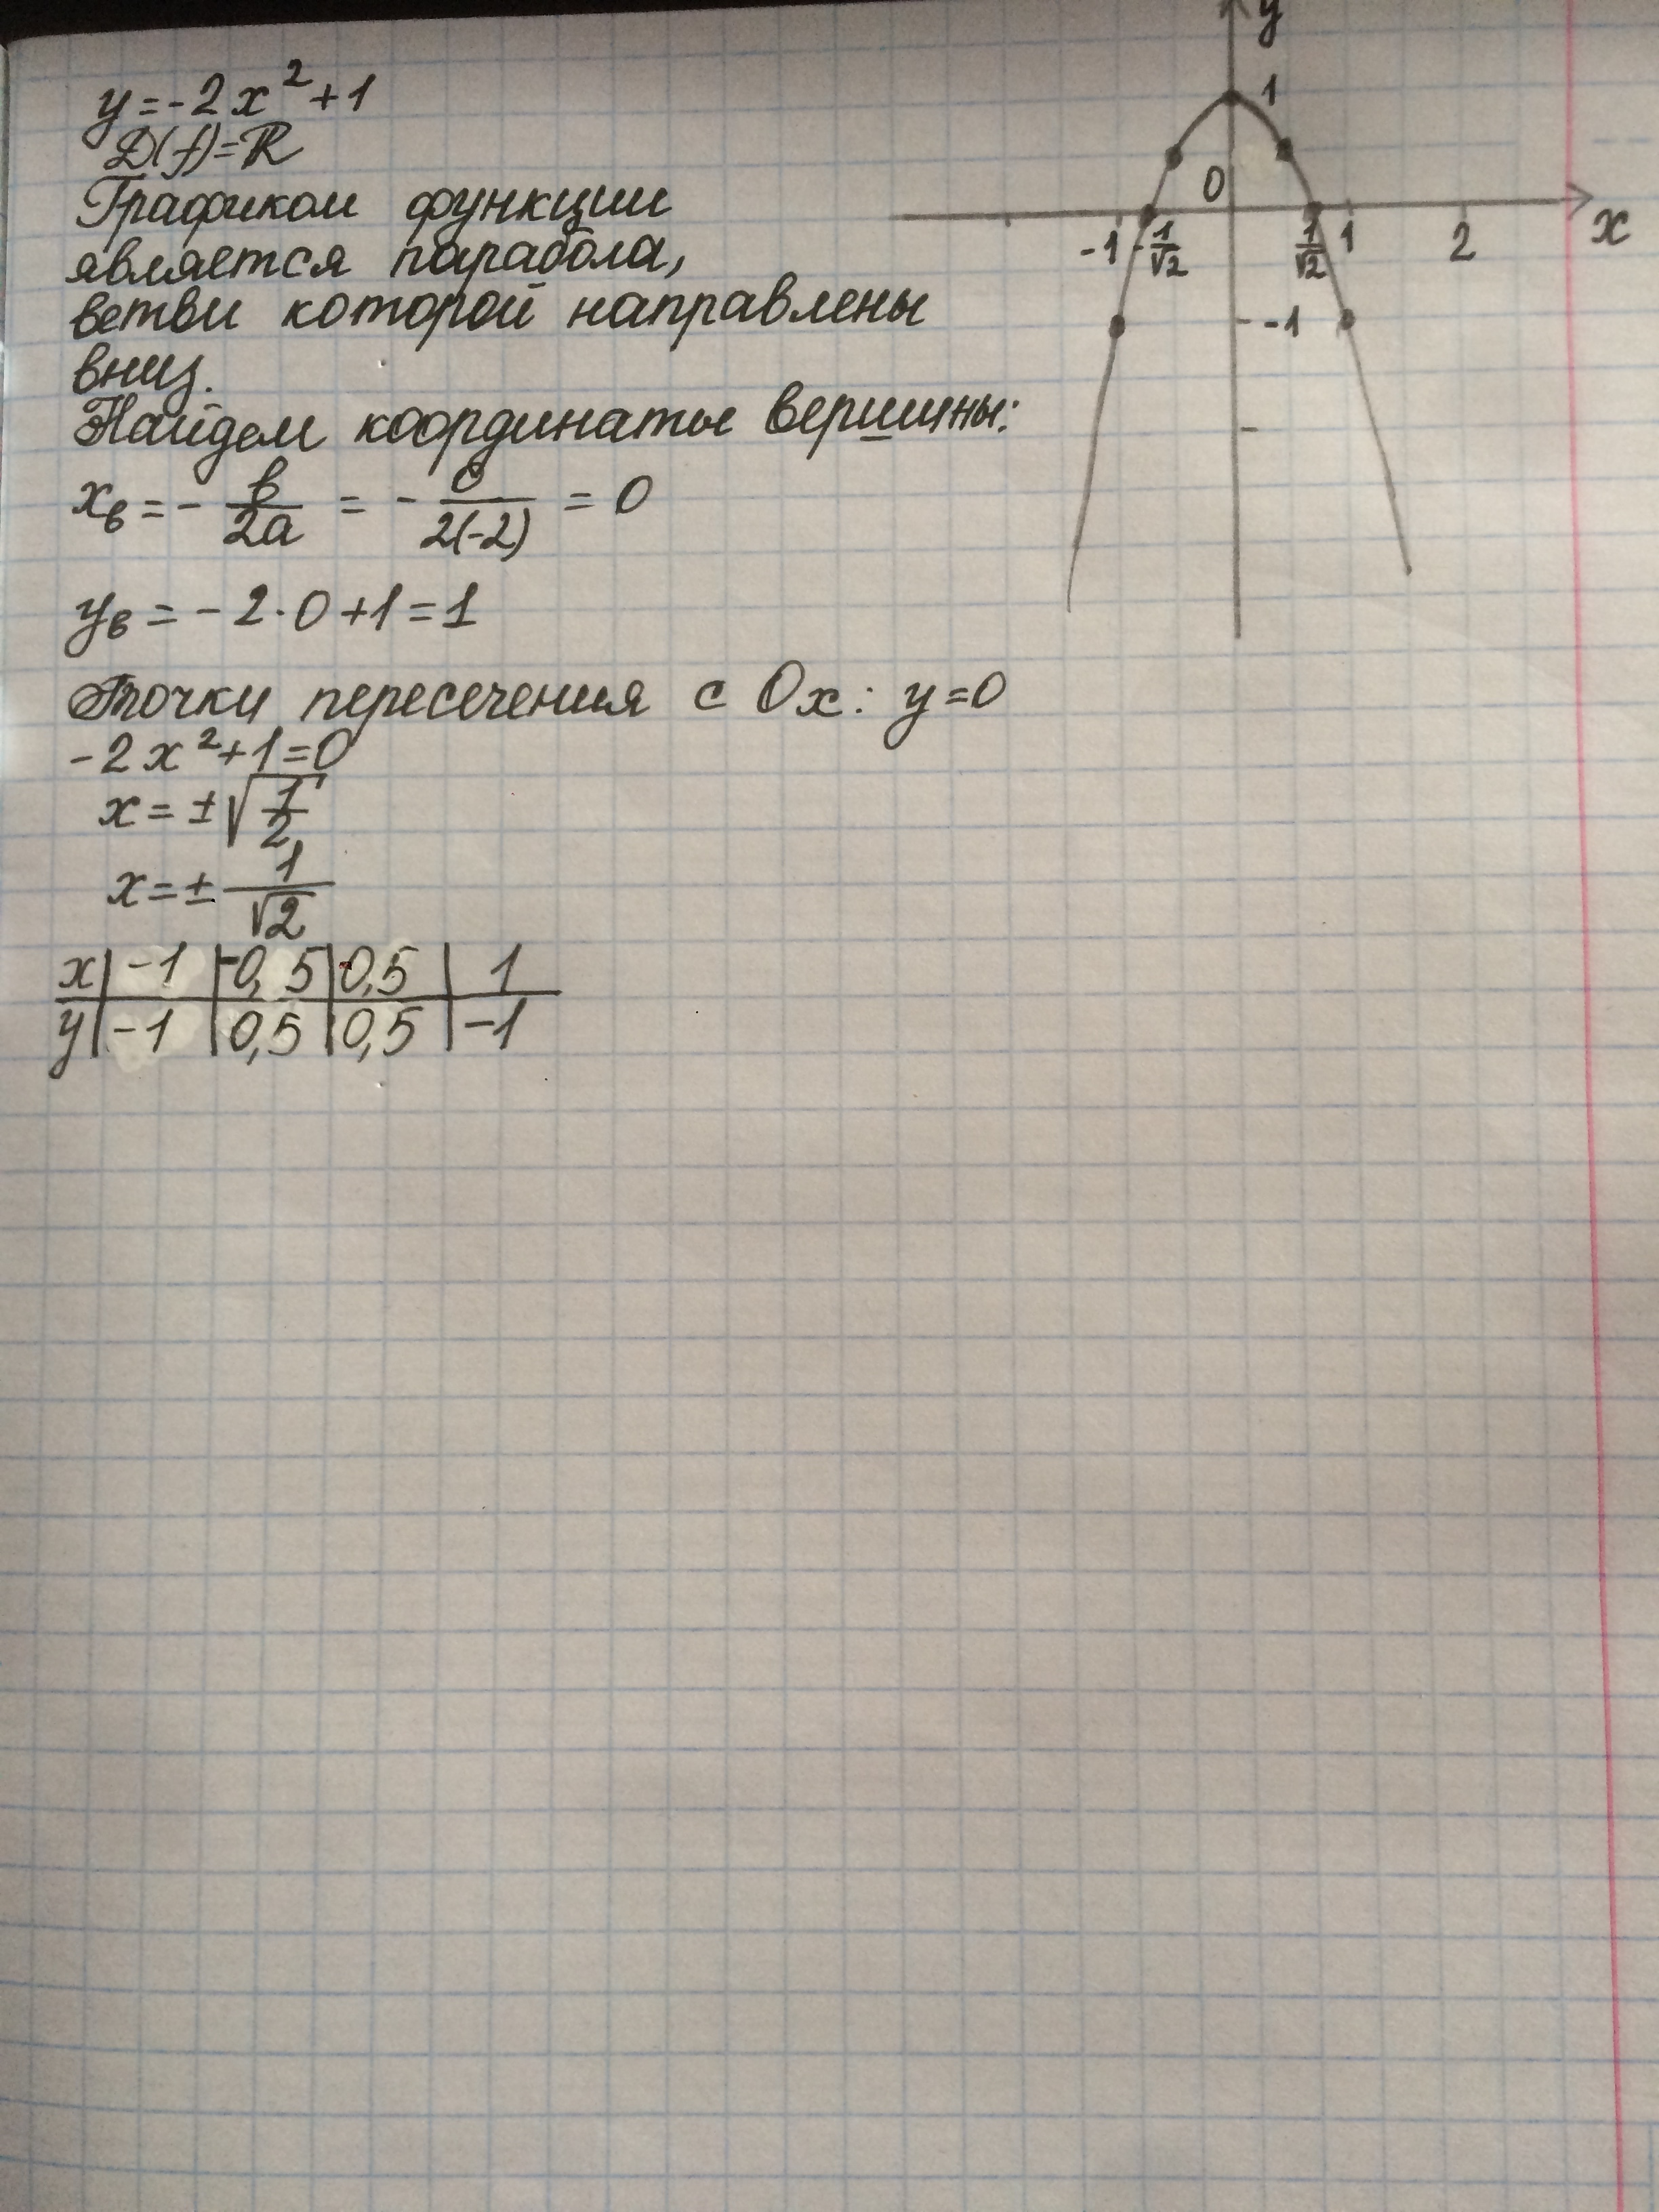 y=-2x²+1
D(f)=ℝ
Графиком функции
является парабола,
ветви которой направлены
вниз.
Найдем координаты вершины:
xв = - b/2a = - 0/2(-2) = 0
yв = -2·0+1=1
Точки пересечения с Ox: y=0
-2x²+1=0
x=±√(1/2)
x=± 1/√2
x | -1 | -0,5 | 0,5 | 1
y | -1 | 0,5 | 0,5 | -1
y
1
0
x
-1 -1/√2 1/√2 1 2
-1